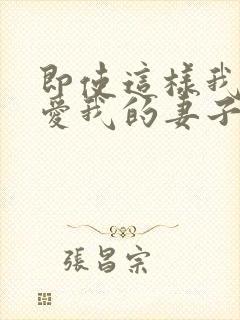 即使這樣我
愛我的妻子
張昌宗